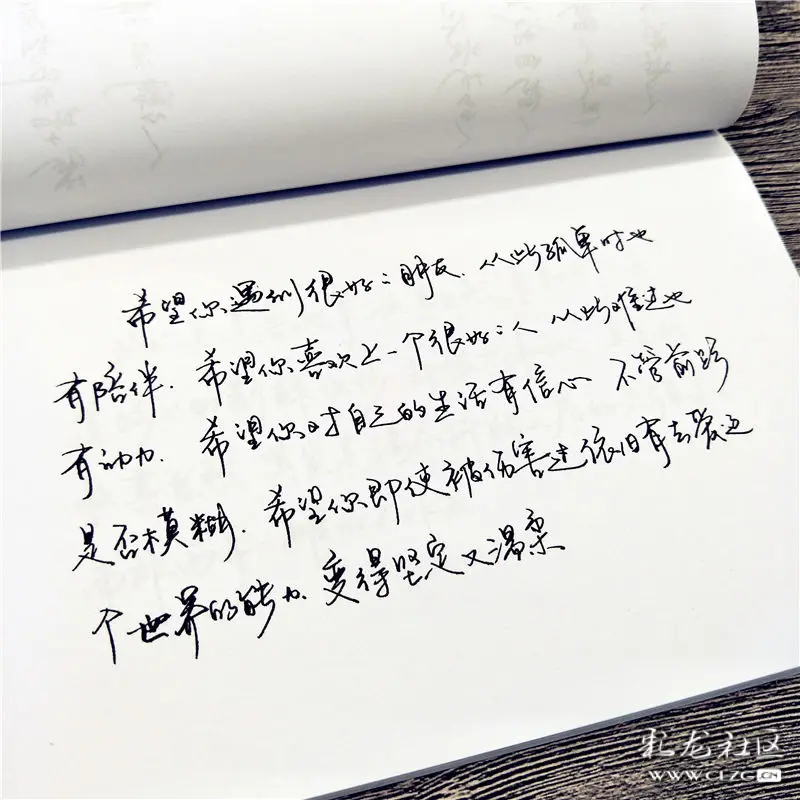 希望你遇到很好的朋友.从此孤单时也
有陪伴.希望你喜欢上一个很好的人 从此难过也
有动力.希望你对自己的生活有信心 不管前路
是否模糊.希望你即使被伤害过依旧有去爱这
个世界的能力.变得坚定又温柔
彩龙社区
WWW.CLZG.CN